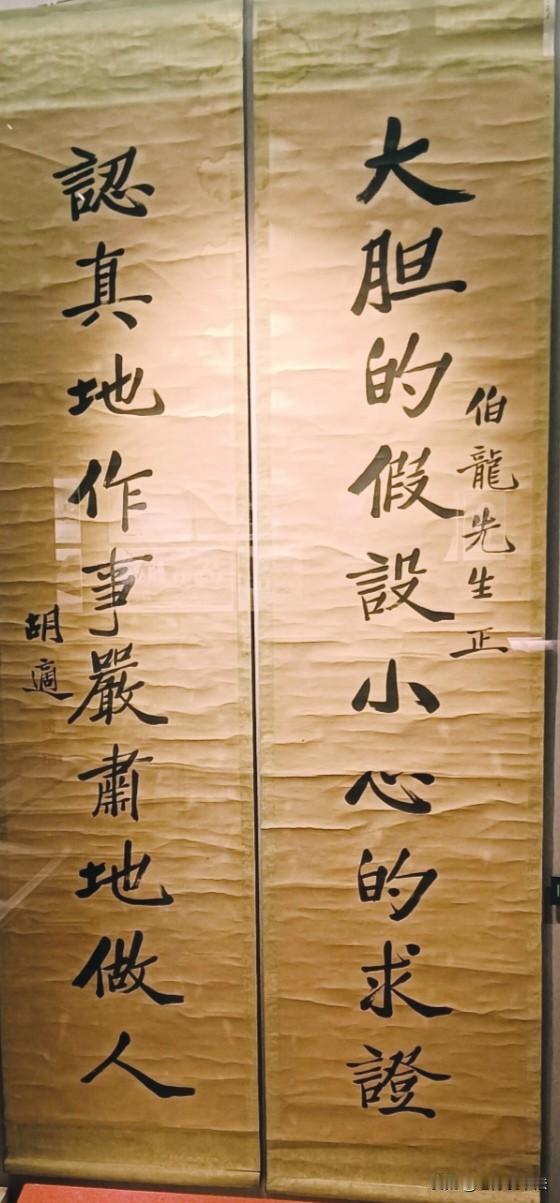 大胆的假設小心的求證
伯龍先生正
認真地作事嚴肅地做人
胡適